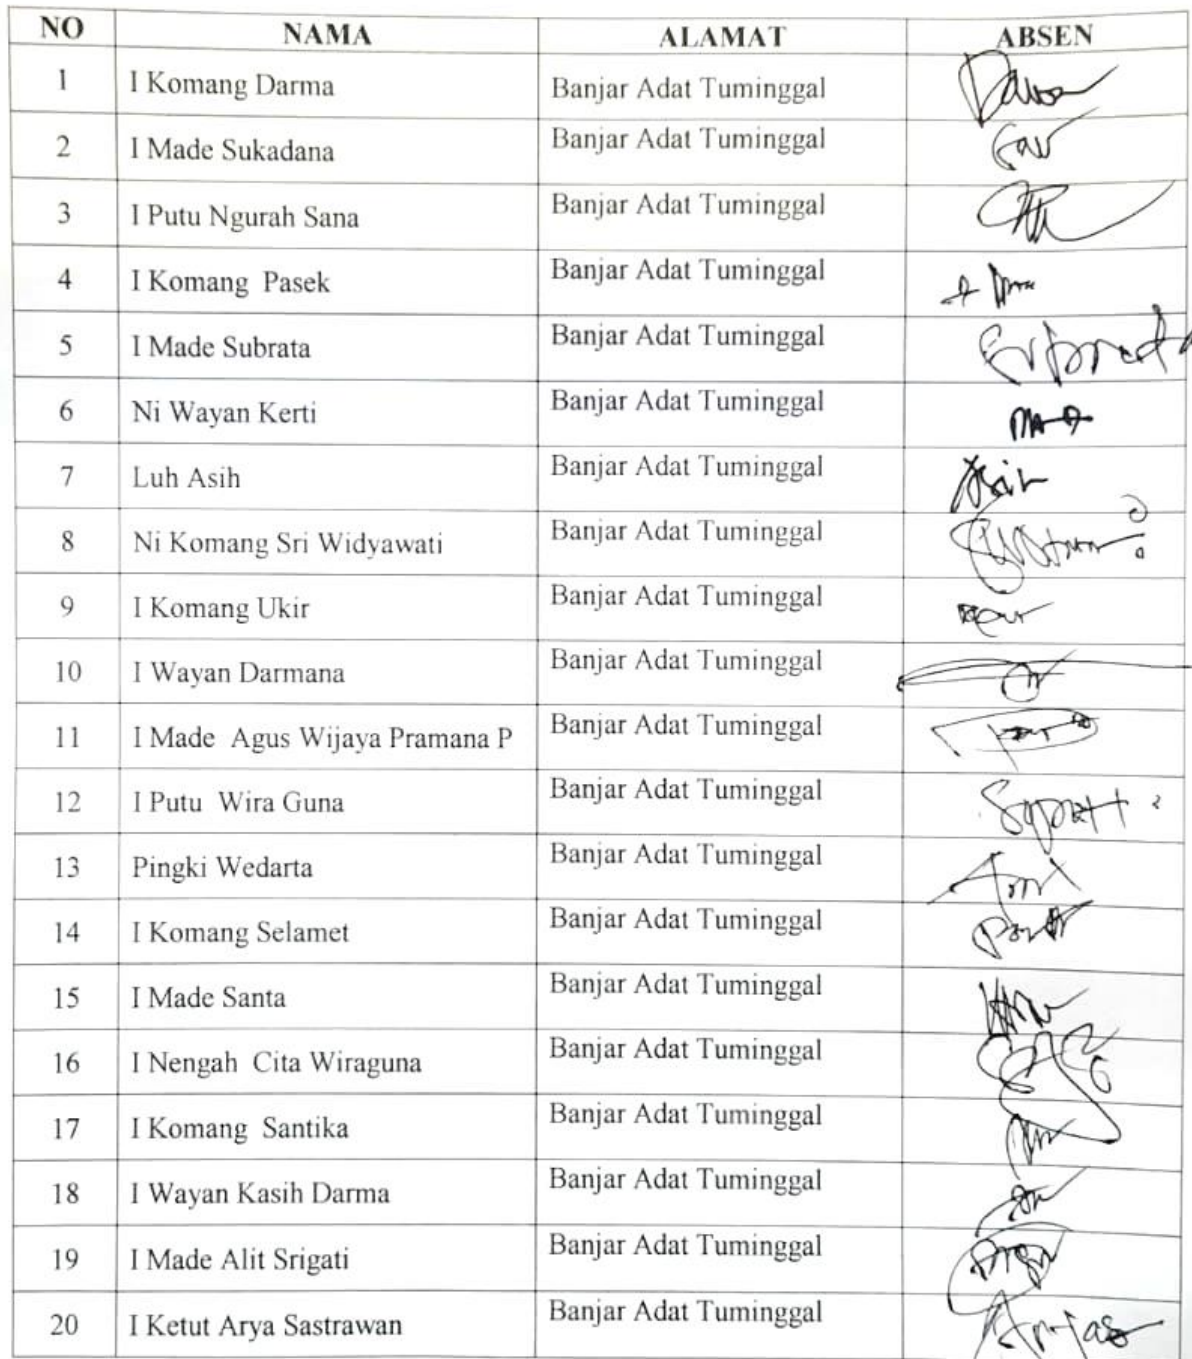 NO NAMA ALAMAT ABSEN
1 I Komang Darma Banjar Adat Tuminggal
2 I Made Sukadana Banjar Adat Tuminggal
3 I Putu Ngurah Sana Banjar Adat Tuminggal
4 I Komang Pasek Banjar Adat Tuminggal
5 I Made Subrata Banjar Adat Tuminggal
6 Ni Wayan Kerti Banjar Adat Tuminggal
7 Luh Asih Banjar Adat Tuminggal
8 Ni Komang Sri Widyawati Banjar Adat Tuminggal
9 I Komang Ukir Banjar Adat Tuminggal
10 I Wayan Darmana Banjar Adat Tuminggal
11 I Made Agus Wijaya Pramana P Banjar Adat Tuminggal
12 I Putu Wira Guna Banjar Adat Tuminggal
13 Pingki Wedarta Banjar Adat Tuminggal
14 I Komang Selamet Banjar Adat Tuminggal
15 I Made Santa Banjar Adat Tuminggal
16 I Nengah Cita Wiraguna Banjar Adat Tuminggal
17 I Komang Santika Banjar Adat Tuminggal
18 I Wayan Kasih Darma Banjar Adat Tuminggal
19 I Made Alit Srigati Banjar Adat Tuminggal
20 I Ketut Arya Sastrawan Banjar Adat Tuminggal